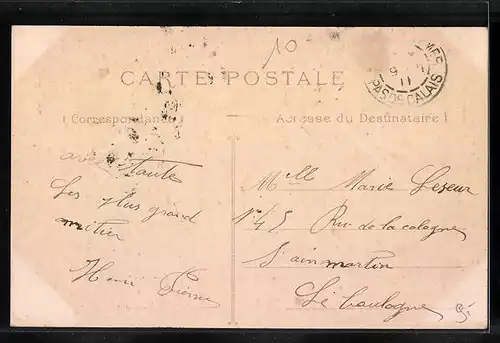 10
CARTE POSTALE
(Correspondance)
Adresse du Destinataire)
MER
9
11
PAS-DE-CALAIS
avec toute
Les plus grand
amitier
Henri Pierre
Melle Marie Leseur
No 45 Ru de la cologne
S'ain martin
Lé boulogne